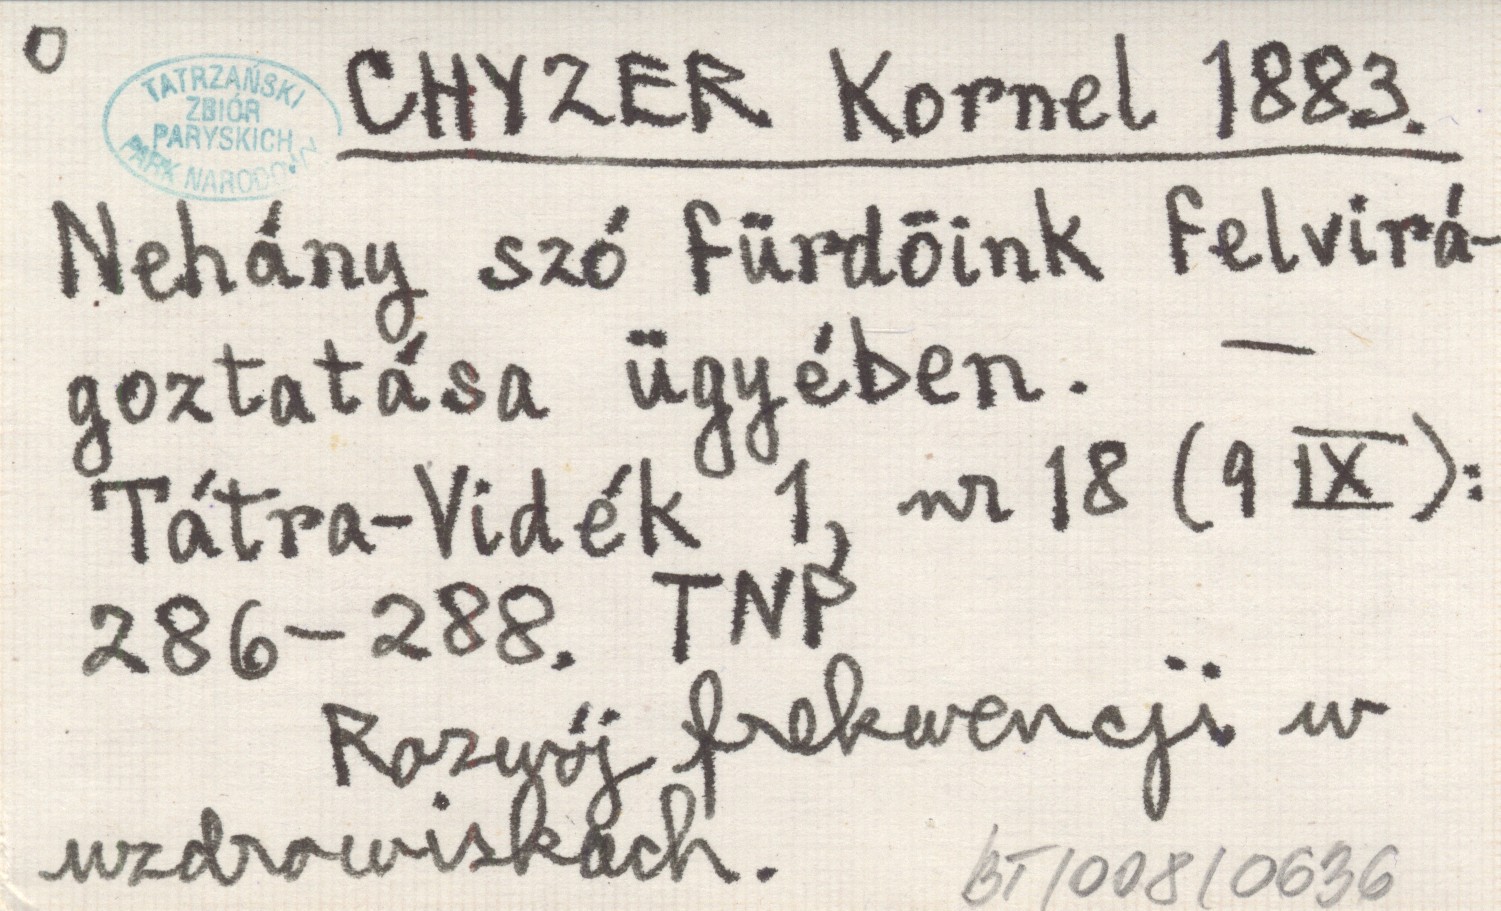 O
TATRZAŃSKI
ZBIÓR
PARYSKICH
PARK NARODOWY
CHYZER Kornel 1883.
Nehány szó fürdőink felvirá-
goztatása ügyében. —
Tátra-Vidék 1, nr 18 (9 IX):
286-288. TNP
Rozwój frekwencji w
uzdrowiskach.
BT/008/0636